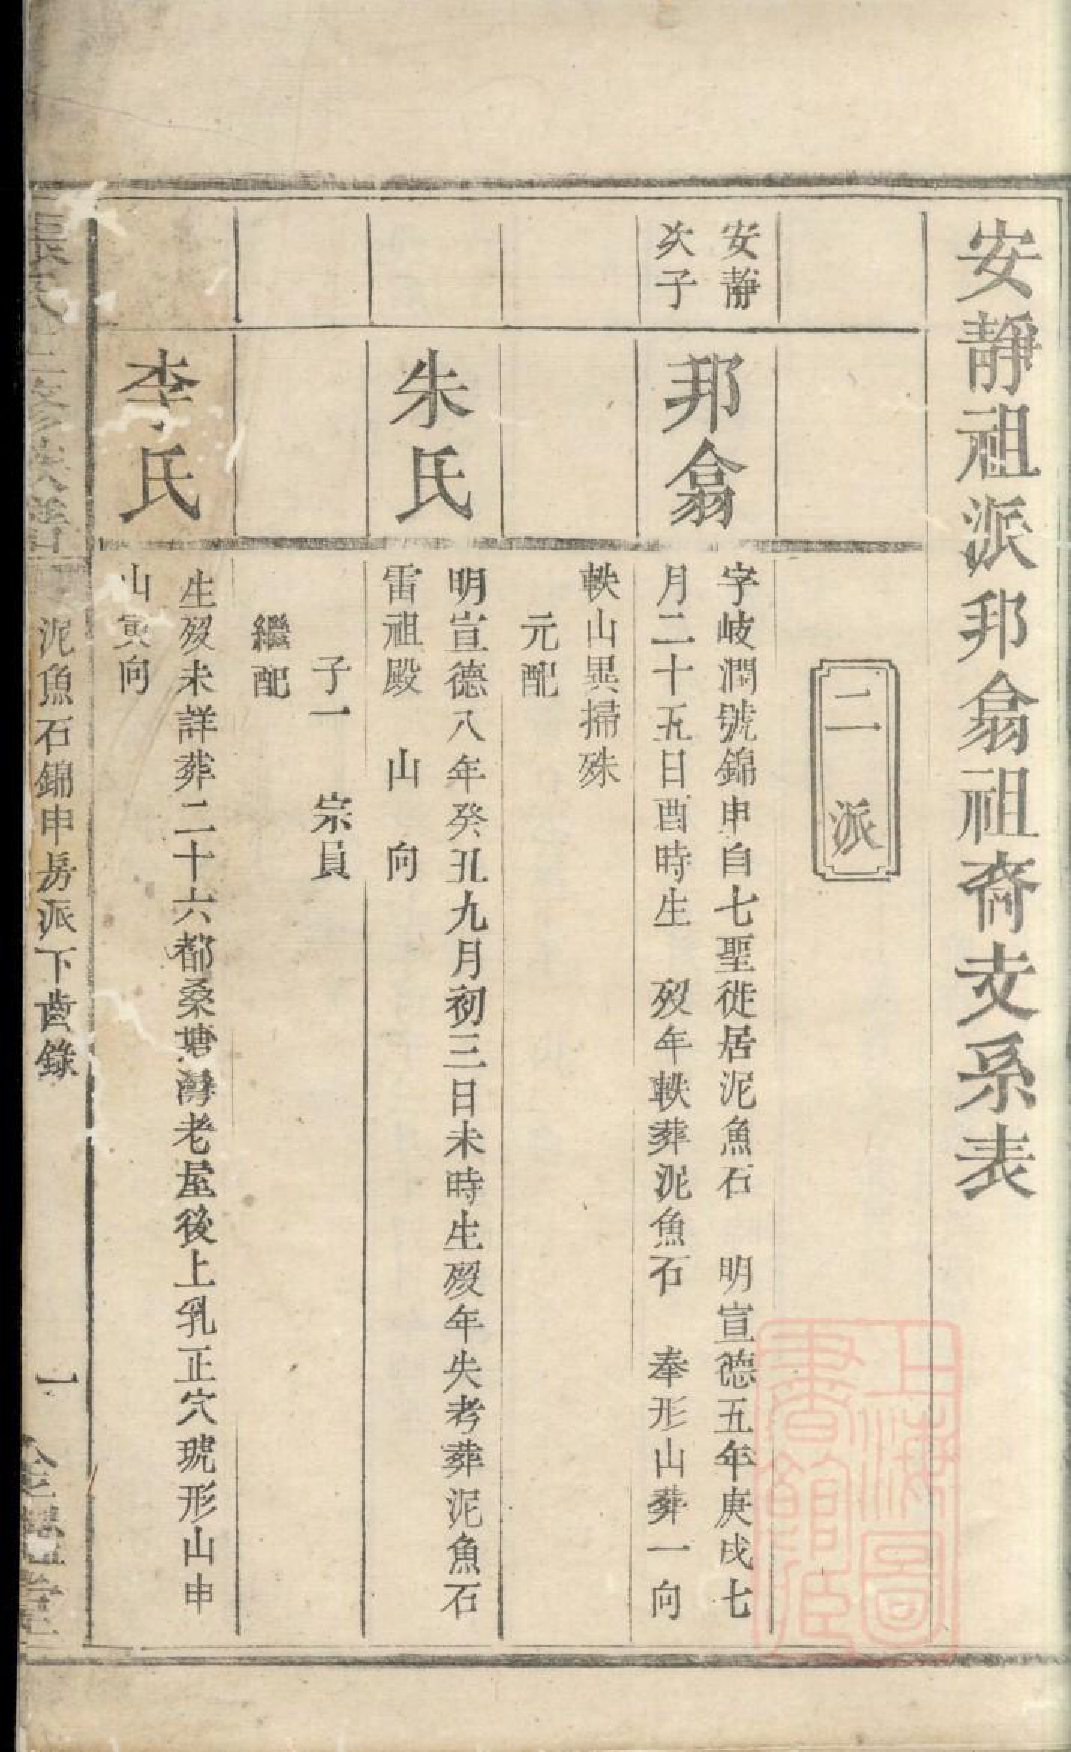 安靜祖派邦翕祖裔支系表
二派
安靜
次子
邦翕
字岐潤號錦申自七聖徙居泥魚石 明宣德五年庚戌七
月二十五日酉時生 歿年軼葬泥魚石 奉形山葬一向
軼山異掃殊
元配
朱氏
明宣德八年癸丑九月初三日未時生歿年失考葬泥魚石
雷祖殿 山 向
子一 宗員
繼配
李氏
生歿未詳葬二十六都桑塘灣老屋後上乳正穴琥形山申
山寅向
張氏 修族譜
泥魚石錦申房派下齒錄
一
上海圖書館藏